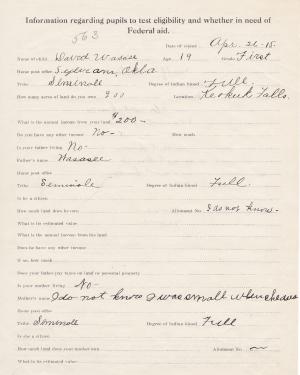 Information regarding pupils to test eligibility and whether in need of
Federal aid.
563
Date of record Apr. 26-15.
Name of child David Wasase Age 19 Grade First
Home post office Okla
Tribe Siminole Degree of Indian blood Full.
How many acres of land do you own 200 Location Keokuk Falls.
What is the annual income from your land $200-
Do you have any other income No- How much
Is your father living No-
Father's name Wasasee
Home post office
Tribe Seminole Degree of Indian blood Full.
Is he a citizen
How much land does he own Allotment No. I do not know-
What is its estimated value
What is the annual income from his land
Does he have any other income
If so, how much
Does your father pay taxes on land or personal property
Is your mother living No-
Mother's name I do not know I was small when she
Home post office
Tribe Siminole Degree of Indian blood Full
Is she a citizen
How much land does your mother own Allotment No. ~
What is its estimated value